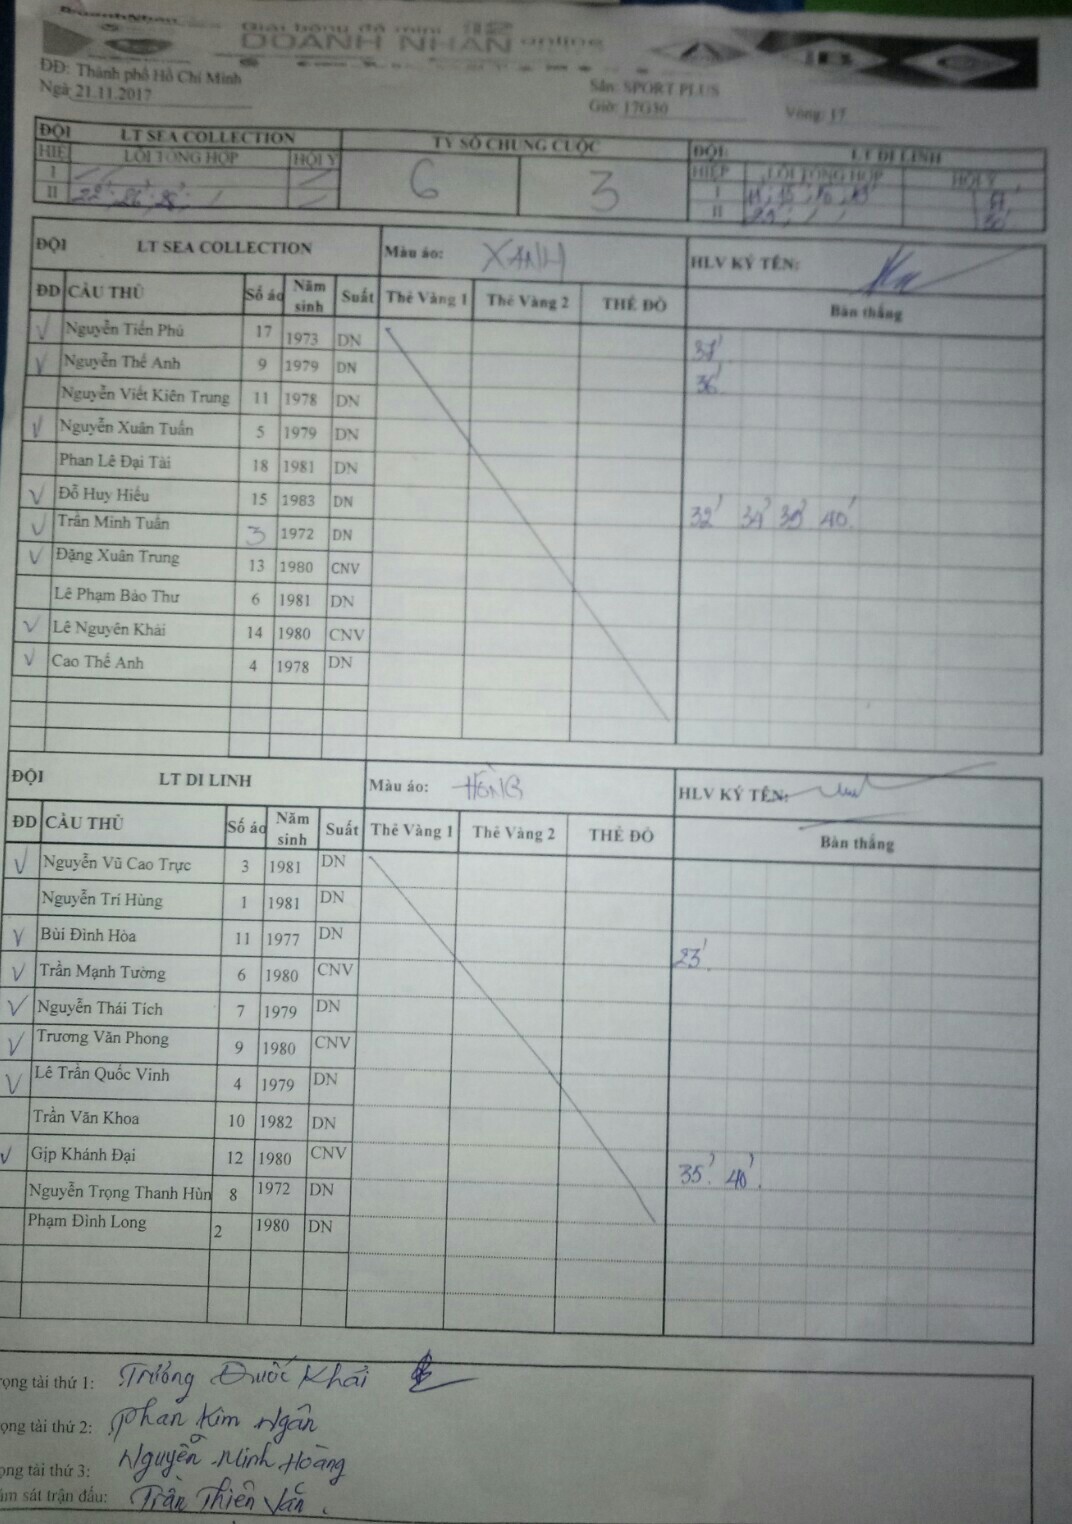 Giải bóng đá mini
DOANH NHÂN online
ĐĐ: Thành phố Hồ Chí Minh
Ngà 21.11.2017
Sân: SPORT PLUS
Giờ: 17G30
Vòng: 17
ĐỘI LT SEA COLLECTION TỶ SỐ CHUNG CUỘC ĐỘI: LT DI LINH
HIỆ LỖI TỔNG HỢP HỘI Ý 6 3 HIỆP LỖI TỔNG HỢP HỘI Ý
I I
II 22' 26' 28' II 29'
ĐỘI LT SEA COLLECTION Màu áo: XANH HLV KÝ TÊN:
ĐD CẦU THỦ Số áo Năm sinh Suất Thẻ Vàng 1 Thẻ Vàng 2 THẺ ĐỎ Bàn thắng
Nguyễn Tiến Phú 17 1973 DN 37'
Nguyễn Thế Anh 9 1979 DN 36'
Nguyễn Viết Kiên Trung 11 1978 DN
Nguyễn Xuân Tuấn 5 1979 DN
Phan Lê Đại Tài 18 1981 DN
Đỗ Huy Hiếu 15 1983 DN 32' 34' 39' 40'
Trần Minh Tuấn 3 1972 DN
Đặng Xuân Trung 13 1980 CNV
Lê Phạm Bảo Thư 6 1981 DN
Lê Nguyên Khải 14 1980 CNV
Cao Thế Anh 4 1978 DN
ĐỘI LT DI LINH Màu áo: HỒNG HLV KÝ TÊN:
ĐD CẦU THỦ Số áo Năm sinh Suất Thẻ Vàng 1 Thẻ Vàng 2 THẺ ĐỎ Bàn thắng
Nguyễn Vũ Cao Trực 3 1981 DN
Nguyễn Trí Hùng 1 1981 DN
Bùi Đình Hòa 11 1977 DN 23'
Trần Mạnh Tường 6 1980 CNV
Nguyễn Thái Tích 7 1979 DN
Trương Văn Phong 9 1980 CNV
Lê Trần Quốc Vinh 4 1979 DN
Trần Văn Khoa 10 1982 DN
Gịp Khánh Đại 12 1980 CNV 35' 40'
Nguyễn Trọng Thanh Hùn 8 1972 DN
Phạm Đình Long 2 1980 DN
rọng tài thứ 1: Trương Quốc Khải
ọng tài thứ 2: Phan Kim Ngân
ọng tài thứ 3: Nguyễn Minh Hoàng
ám sát trận đấu: Trần Thiên Vấn